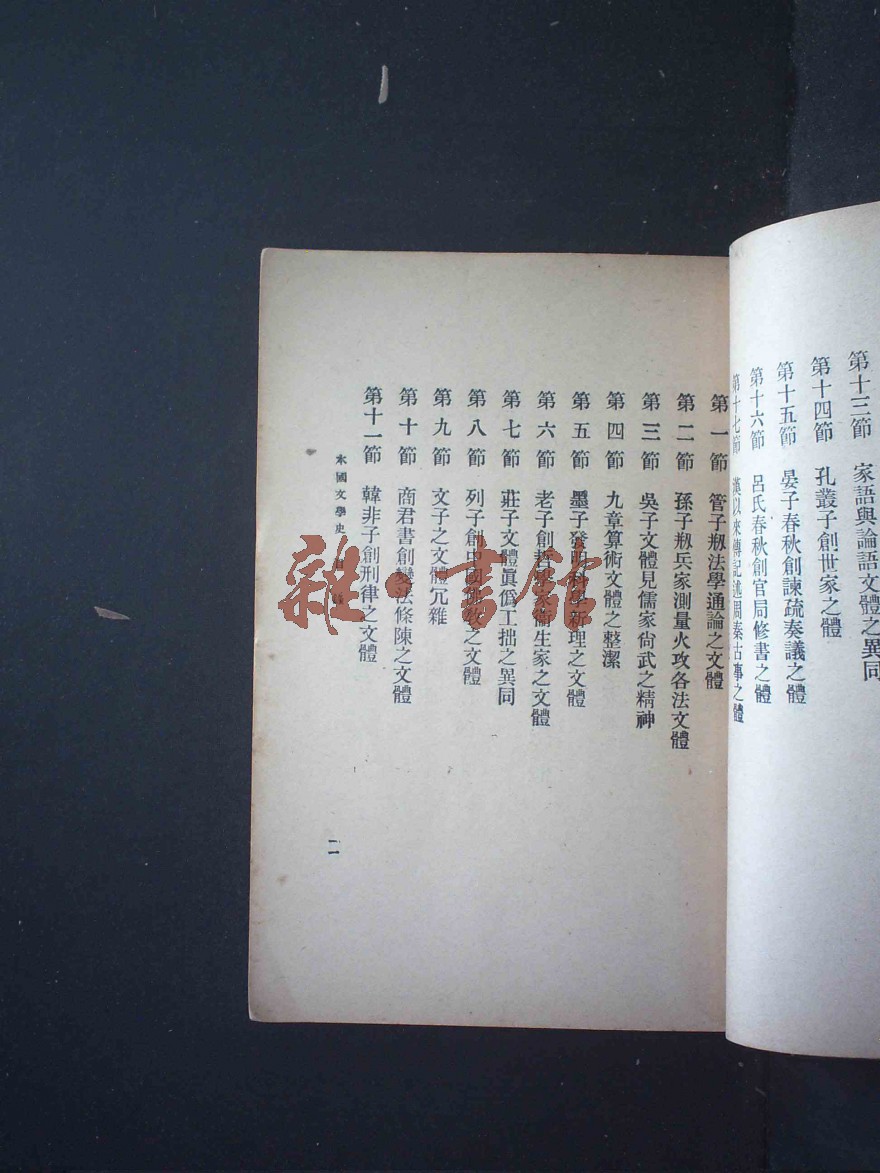 第十三節　家語與論語文體之異同
第十四節　孔叢子創世家之體
第十五節　晏子春秋創諫疏奏議之體
第十六節　呂氏春秋創官局修書之體
第十七節　漢以來傳記述周秦古事之體
第一節　管子剏法學通論之文體
第二節　孫子剏兵家測量火攻各法文體
第三節　吳子文體見儒家尙武之精神
第四節　九章算術文體之整潔
第五節　墨子發明科學新理之文體
第六節　老子創哲學家衞生家之文體
第七節　莊子文體眞僞工拙之異同
第八節　列子創中國佛教之文體
第九節　文子之文體冗雜
第十節　商君書創變法條陳之文體
第十一節　韓非子創刑律之文體
國文學史　目錄
一一
雜·書館